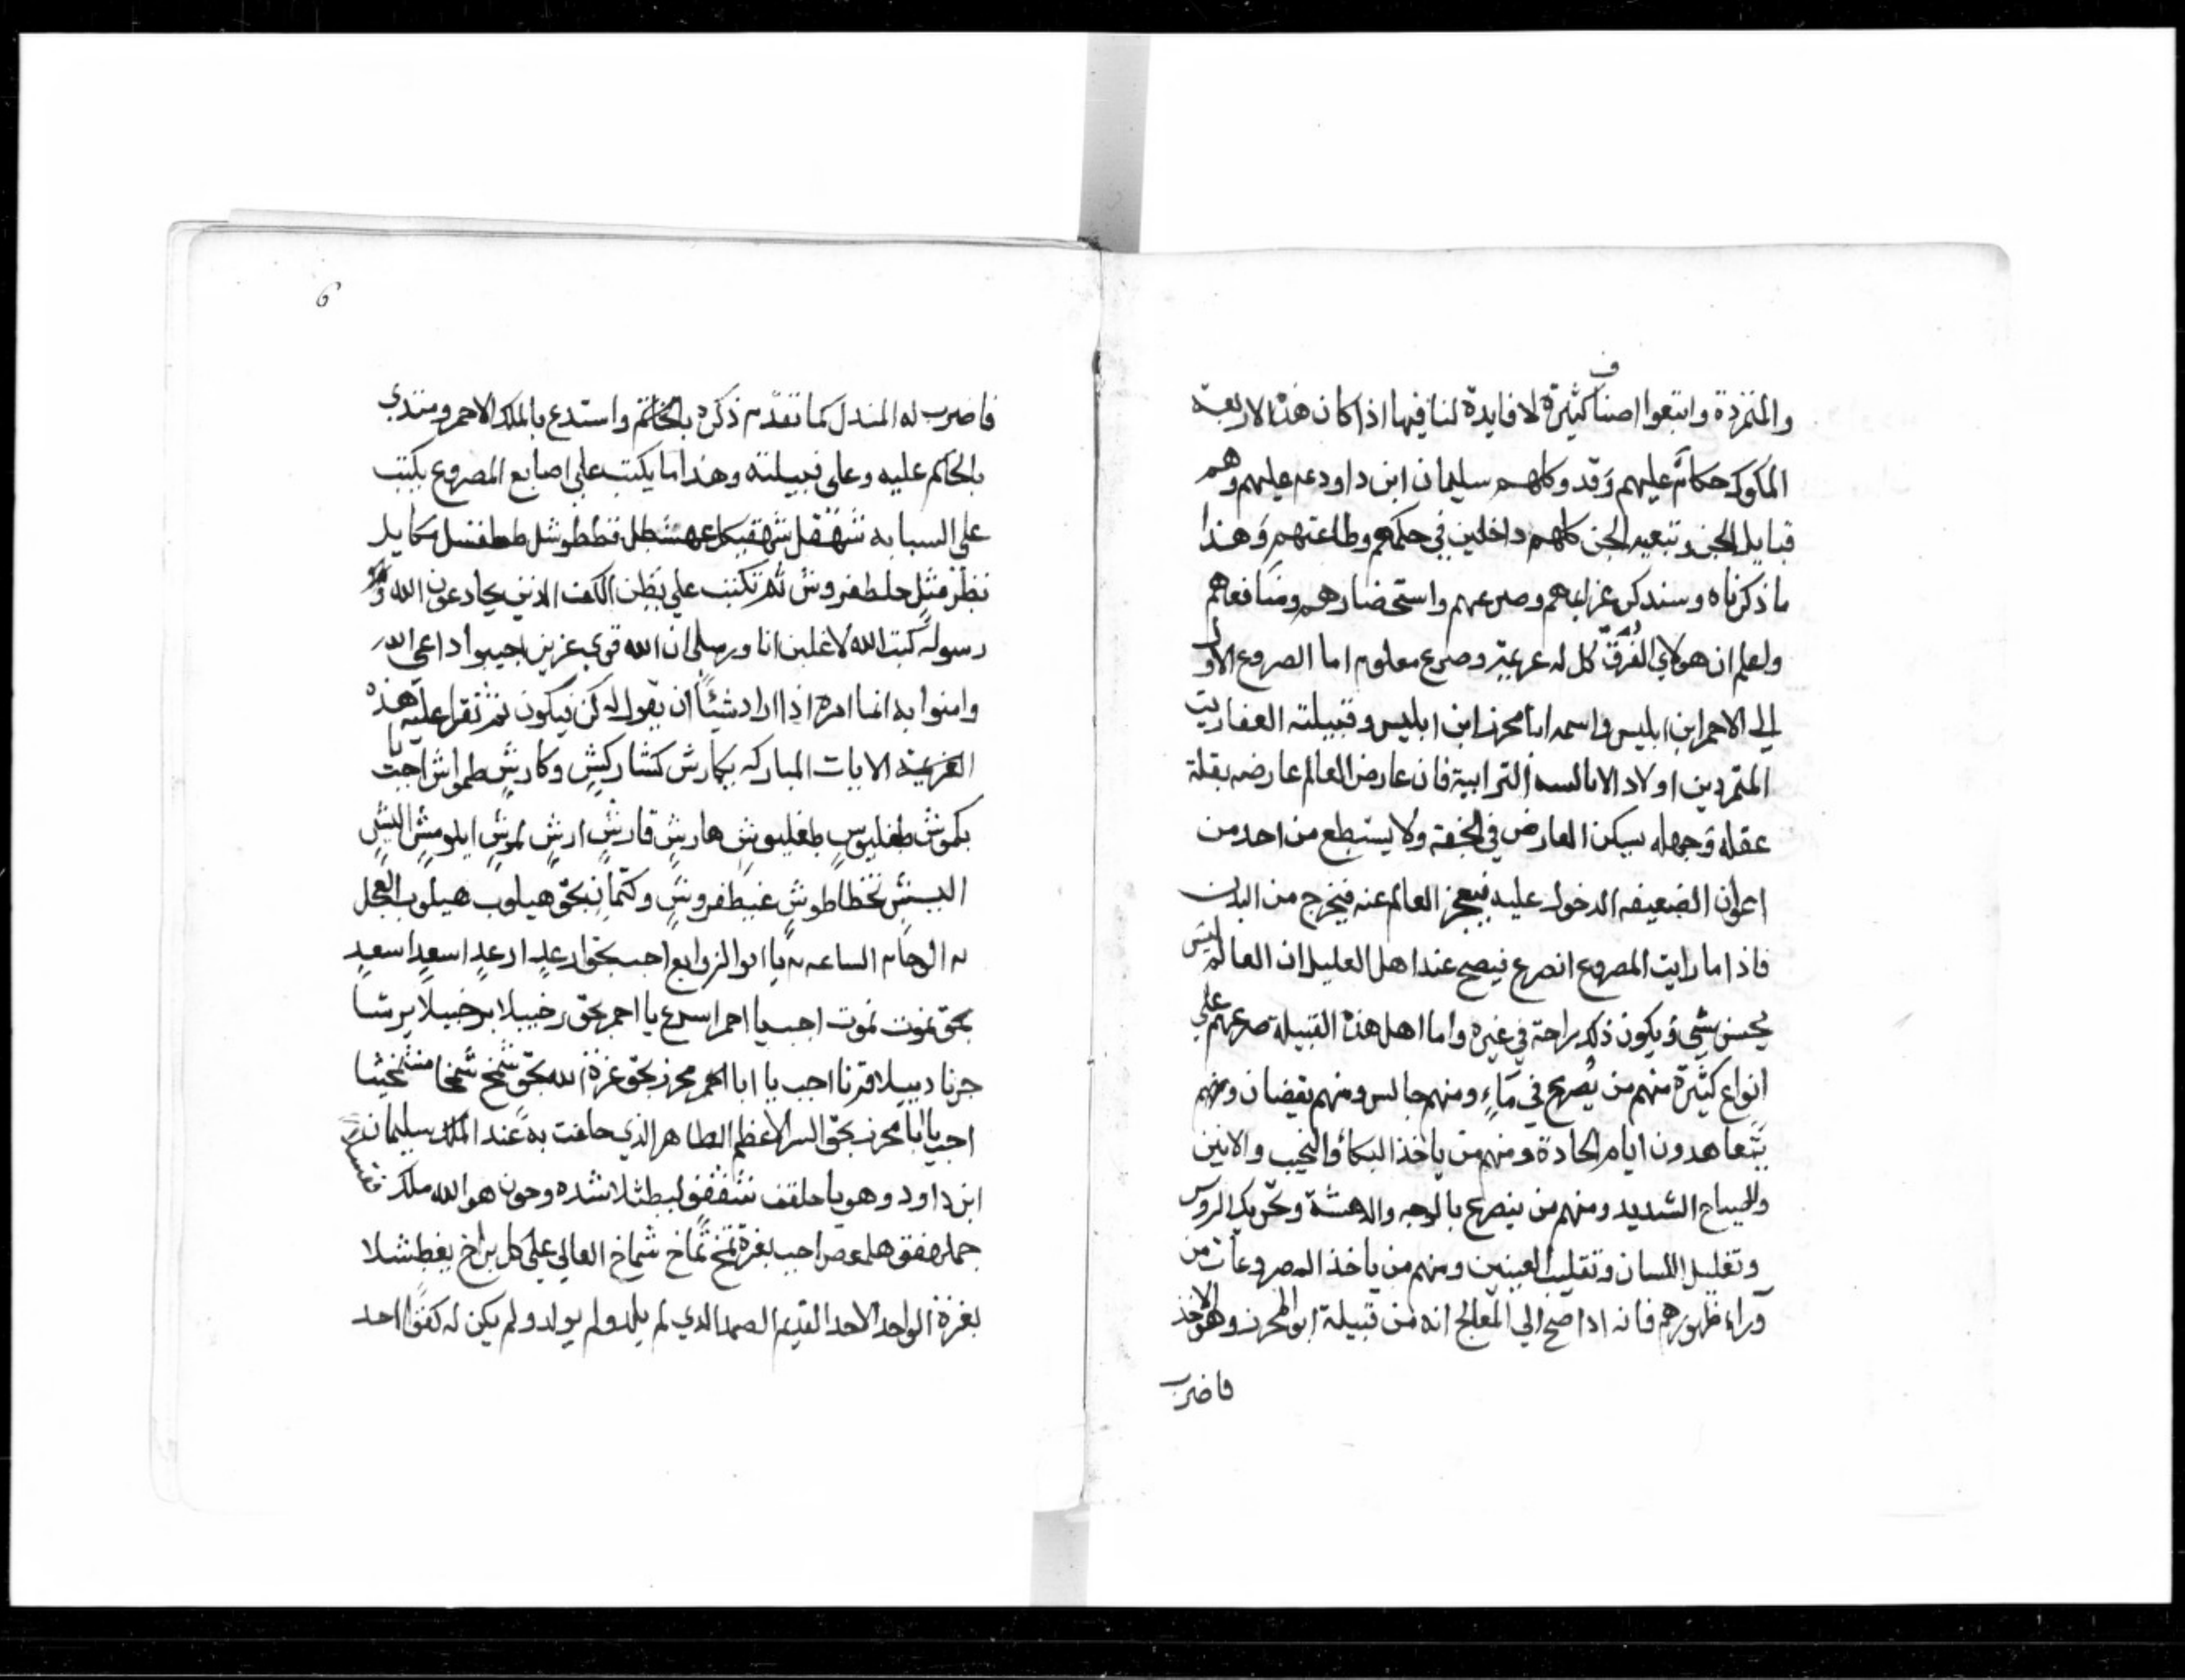 والمتمردة وابتعوا اصناف كثيرة لا فايدة لنا فيها اذا كان هذه الاربعة
الملوك حكام عليهم وقد وكلهم سليمان ابن داود عم عليهم وهم
قبايل الجن وتبعيه الجن كلهم داخلين في حكمهم وطاعتهم وهذا
ما ذكرناه وسنذكر عزايمهم وصرعهم واستحضارهم ومنافعهم
ولعلم ان هولاي الفرق كل له عزيمة وصرع معلوم اما الصروع الاول
الي الاحمر ابن ابليس واسمه ابا محرز ابن ابليس وقبيلته العفاريت
المتمردين اولاد الابالسه الترابية فان عارض العالم عارضه بقلة
عقله وجهله سكن العارض في الجثة ولا يستطع من احد من
اعوان الضعيفه الدخول عليه فيعجز العالم عنه فيخرج من البدن
فاذا ما رايت المصروع انصرع فيصح عند اهل العليل ان العالم ليس
يحسن شي ويكون ذلك راحة في غيره واما اهل هذه القبيلة صرعهم علي
انواع كثيرة منهم من يصرع في ماء ومنهم جالس ومنهم يقضان ومنهم
يتعاهدون ايام الحادة ومنهم من ياخذ البكاء والنحيب والانين
والصياح الشديد ومنهم من ينصرع بالوجه والدهشة وتحريك الروس
وتغليل اللسان وتقليب العينين ومنهم من ياخذ المصروعات من
وراء ظهورهم فانه اذا صح الي المعالج انه من قبيلة ابو المحرز وهو الاخذ
فاضرب
6
فاضرب له المندل كما تقدم ذكره بالخاتم واستدع بالملك الاحمر ومتدي
بالحاكم عليه وعلى قبيلته وهذا ما يكتب علي اصابع المصروع يكتب
علي السبابه
ثم تكتب علي بطن الكف الذين يحادعون الله و
رسوله كتب الله لاغلبن انا ورسلي ان الله قوي عزيز اجيبوا داعي الله
وامنوا به انما امره اذا اراد شيئا ان يقول له كن فيكون ثم تقرا عليه هذه
العزيمة الايات المباركه بكارش كشاركش وكارش طمواش اجب يا
بكموش طغليوس طغليوش هارش قارش ارش لموش ايلومش البش
بحق هيلوب هيلوب العجل
الساعه يا ابو الزوابع اجب بحق ارعد ارعد اسعد اسعد
بحق نموت نموت اجب يا احمر اسرع يا احمر بحق رخييلا برخييلا برشا
جرنا دبيلا قرنا اجب يا ابا الحمر محرز بحق عزة الله بحق شمخ شمخا
اجب يا ابا محرز بحق السر الاعظم الطاهر الذي حلفت به عند الملك سليمان
ابن داود وهو يا حلقف هو الله ملك
اجب بعزة شماخ العالي علي كل براخ
بعزة الواحد الاحد القديم الصمد الذي لم يلد ولم يولد ولم يكن له كفوا احد